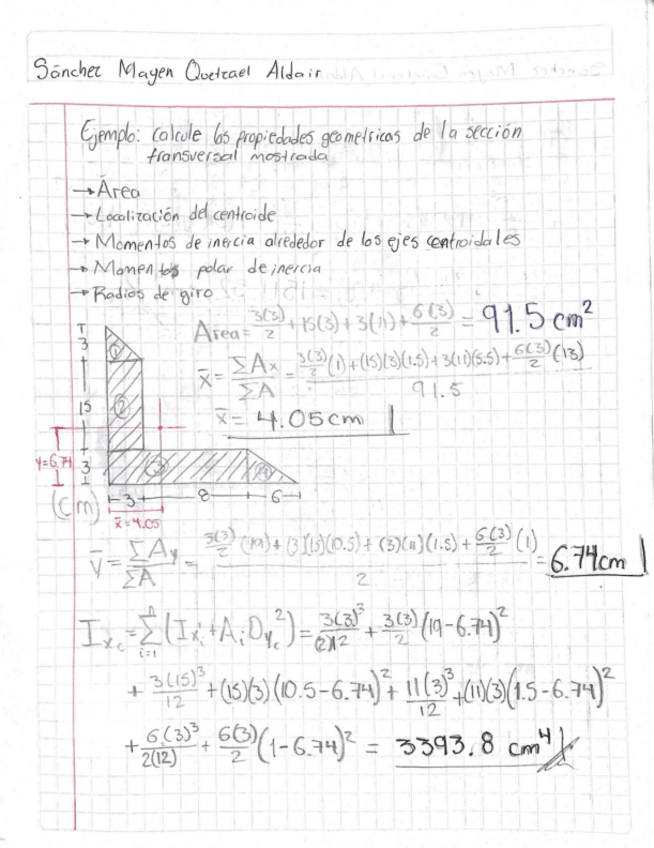 Sánchez Mayen Quetzael Aldair
Ejemplo: Calcule las propiedades geometricas de la sección
transversal mostrada
→ Área
→ Localización del centroide
→ Momentos de inercia alrededor de los ejes centroidales
→ Momentos polar de inercia
→ Radios de giro
Area = 3(3)/2 + 15(3) + 3(11) + 6(3)/2 = 91.5 cm²
x̄ = ΣAx/ΣA = 3(3)/2 (1) + (15)(3)(1.5) + 3(11)(5.5) + 6(3)/2 (13)
91.5
x̄ = 4.05 cm
3
1
15
2
y=6.74
3
3
4
(cm)
3 8 6
x̄=4.05
ȳ = ΣAy/ΣA = 3(3)/2 (19) + (3)(15)(10.5) + (3)(11)(1.5) + 6(3)/2 (1) = 6.74cm
2
Ixc = Σ i=1 n (Ixi + AiDyc²) = 3(3)³/(2)12 + 3(3)/2 (19-6.74)²
+ 3(15)³/12 + (15)(3)(10.5-6.74)² + 11(3)³/12 + (11)(3)(1.5-6.74)²
+ 6(3)³/2(12) + 6(3)/2 (1-6.74)² = 3393.8 cm⁴